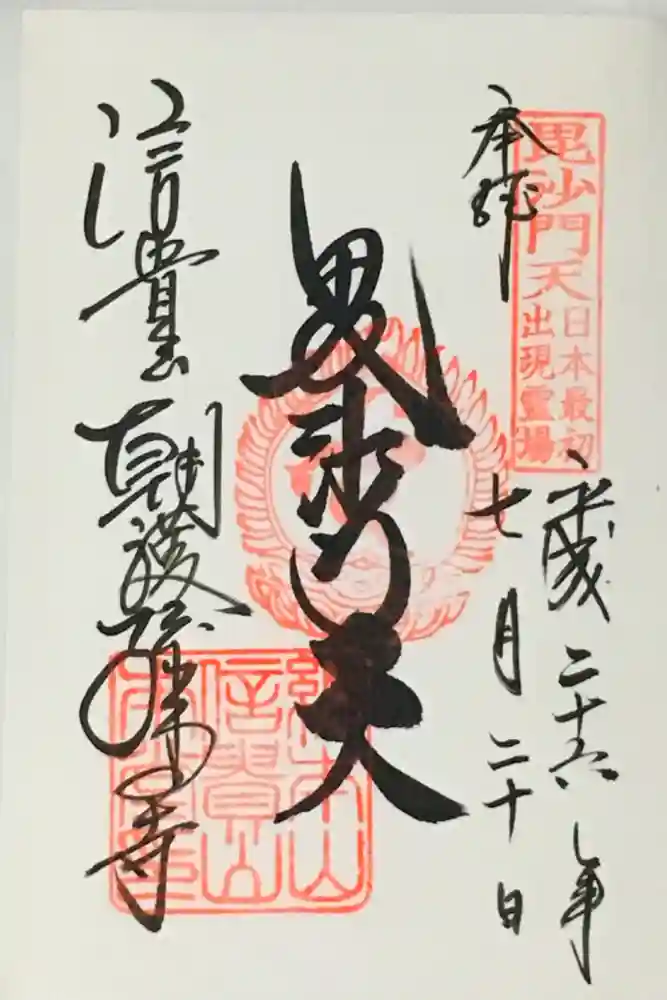 奉拝
毘沙門天
日本最初
出現霊場
平成二十六年
七月二十日
毘沙門天
信貴山 朝護孫子寺
総本山
信貴山